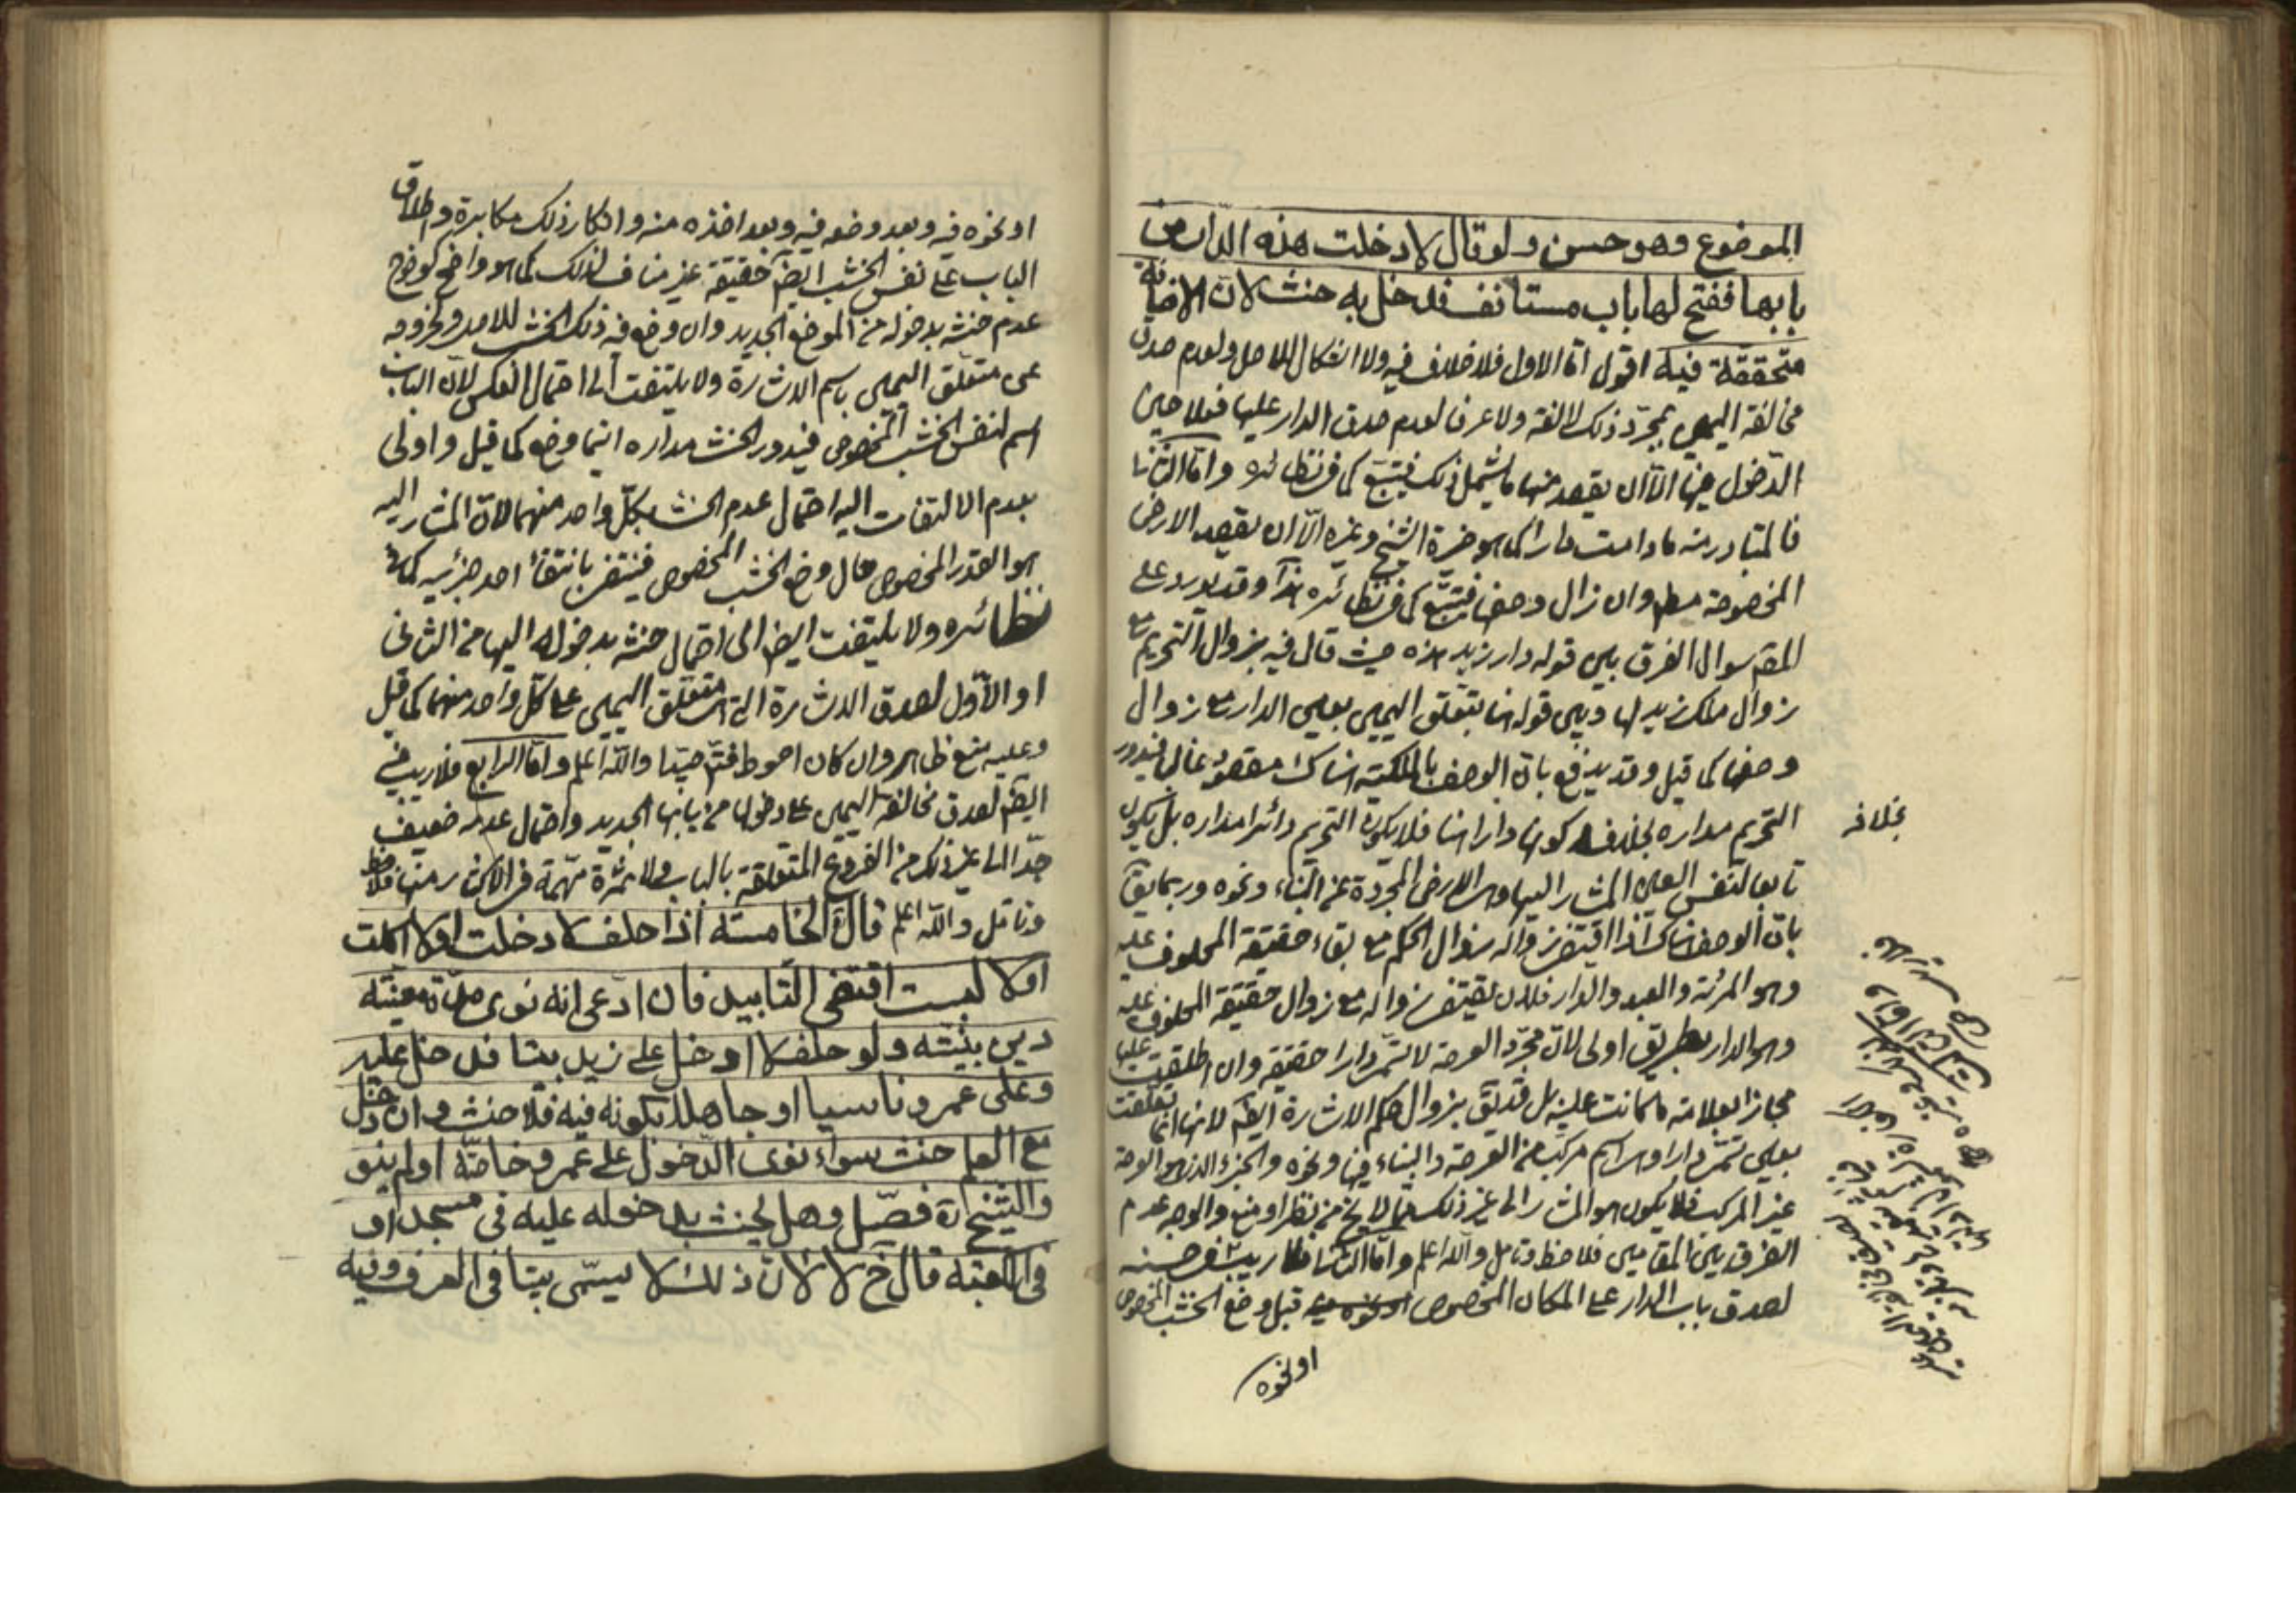 الموضوع وهو حسن ولو قال لا دخلت هذه الدار من
بابها ففتح لها باب مستانف فدخل به حنث لان الاضافة
متحققة فيه اقول اما الاول فلا خلاف فيه ولا اشكال للاصل ولعدم صدق
مخالفة اليمين بمجرد ذلك لا لغة ولا عرفا لعدم صدق الدار عليها فعلا حين
الدخول فيها الا ان يقصد منها ما يشمل ذلك فيتبع كما في نظائره واما الثاني
فالمتبادر منه ما دامت دارا كما هو خيرة الشيخ وغيره الا ان يقصد الارض
المخصوصة مط وان زال وصفها فيتبع كما في نظائره هذا وقد يورد على
المقم سوال الفرق بين قوله دار زيد هذه حيث قال فيه بزوال التحريم مع
زوال ملك زيد لها وبين قوله هنا بتعلق اليمين بعين الدار مع زوال
وصفها كما قيل وقد يدفع بان الوصف بالملكية هناك مقصود غالبا فيدور
التحريم مداره بخلاف كونها دارا هنا فلا يكون التحريم دائرا مداره بل يكون
تابعا لنفس العين المشار اليها وهي الارض المجردة عن البناء ونحوه وربما يق
بان الوصف هناك اذا اقتضى زواله زوال الحكم مع بقاء حقيقة المحلوف عليه
وهو المرئة والعبد والدار فلان يقتضي زواله مع زوال حقيقة المحلوف عليه
وهو الدار بطريق اولى لان مجرد العرصة لا تسمى دارا حقيقة وان اطلقت عليها
مجازا بعلاقة ما كانت عليه بل قد يق بزوال حكم الاشارة ايضا لانها انما تعلقت
بعين تسمى دارا وهي اسم مركب من العرصة والبناء فيها ونحوه والجزء الذي هو العرصة
غير المركب فلا يكون هو المشار الى غير ذلك مما لا يخ من نظر او منع والوجه عدم
الفرق بين المقامين فلاحظ وتامل والله اعلم واما الثالث فلا ريب في حسنه
لصدق باب الدار على المكان المخصوص قبل وضع الخشب المخصوص
او نحوه
بخلافه
او نحوه فيه وبعد وضعه فيه وبعد اخذه منه وانكار ذلك مكابرة واطلاق
الباب على نفس الخشب ايضا حقيقة غير مناف لذلك كما هو واضح كوضوح
عدم حنثه بدخوله من الموضع الجديد وان وضع فيه ذلك الخشب للاصل وخروجه
عن متعلق اليمين باسم الاشارة ولا يلتفت الى احتمال العكس لان الباب
اسم لنفس الخشب المخصوص فيدور الحنث مداره اينما وضع كما قيل واولى
بعدم الالتفات اليه احتمال عدم الحنث بكل واحد منهما لان المشار اليه
هو القدر المخصوص حال وضع الخشب المخصوص فينتفي بانتفاء احد جزئيه كما في
نظائره ولا يلتفت ايضا الى احتمال حنثه بدخوله اليها من الثاني
او الاول لصدق الاشارة التي هي متعلق اليمين على كل واحد منهما كما قيل
وعليه منع ظاهر وان كان احوط فتم جيدا والله اعلم واما الرابع فلا ريب فيه
ايضا لصدق مخالفة اليمين على دخولها من بابها الجديد واحتمال عدمه ضعيف
جدا الى غير ذلك من الفروع المتعلقة بالباب ولا ثمرة مهمة في الاكثار منها فلاحظ
وتامل والله اعلم قال الخامسة اذا حلف لا دخلت او لا اكلت
او لا لبست اقتضى التابيد فان ادعى انه نوى مدة معينة
دين بنيته ولو حلف لا ادخل على زيد بيتا فدخل عليه
وعلى عمرو ناسيا او جاهلا بكونه فيه فلا حنث وان دخل
مع العلم حنث سواء نوى الدخول على عمرو خاصة او لم ينو
والشيخ ره فصل وهل يحنث بدخوله عليه في مسجد او
في الكعبة قال خ لا لان ذلك لا يسمى بيتا في العرف وفيه